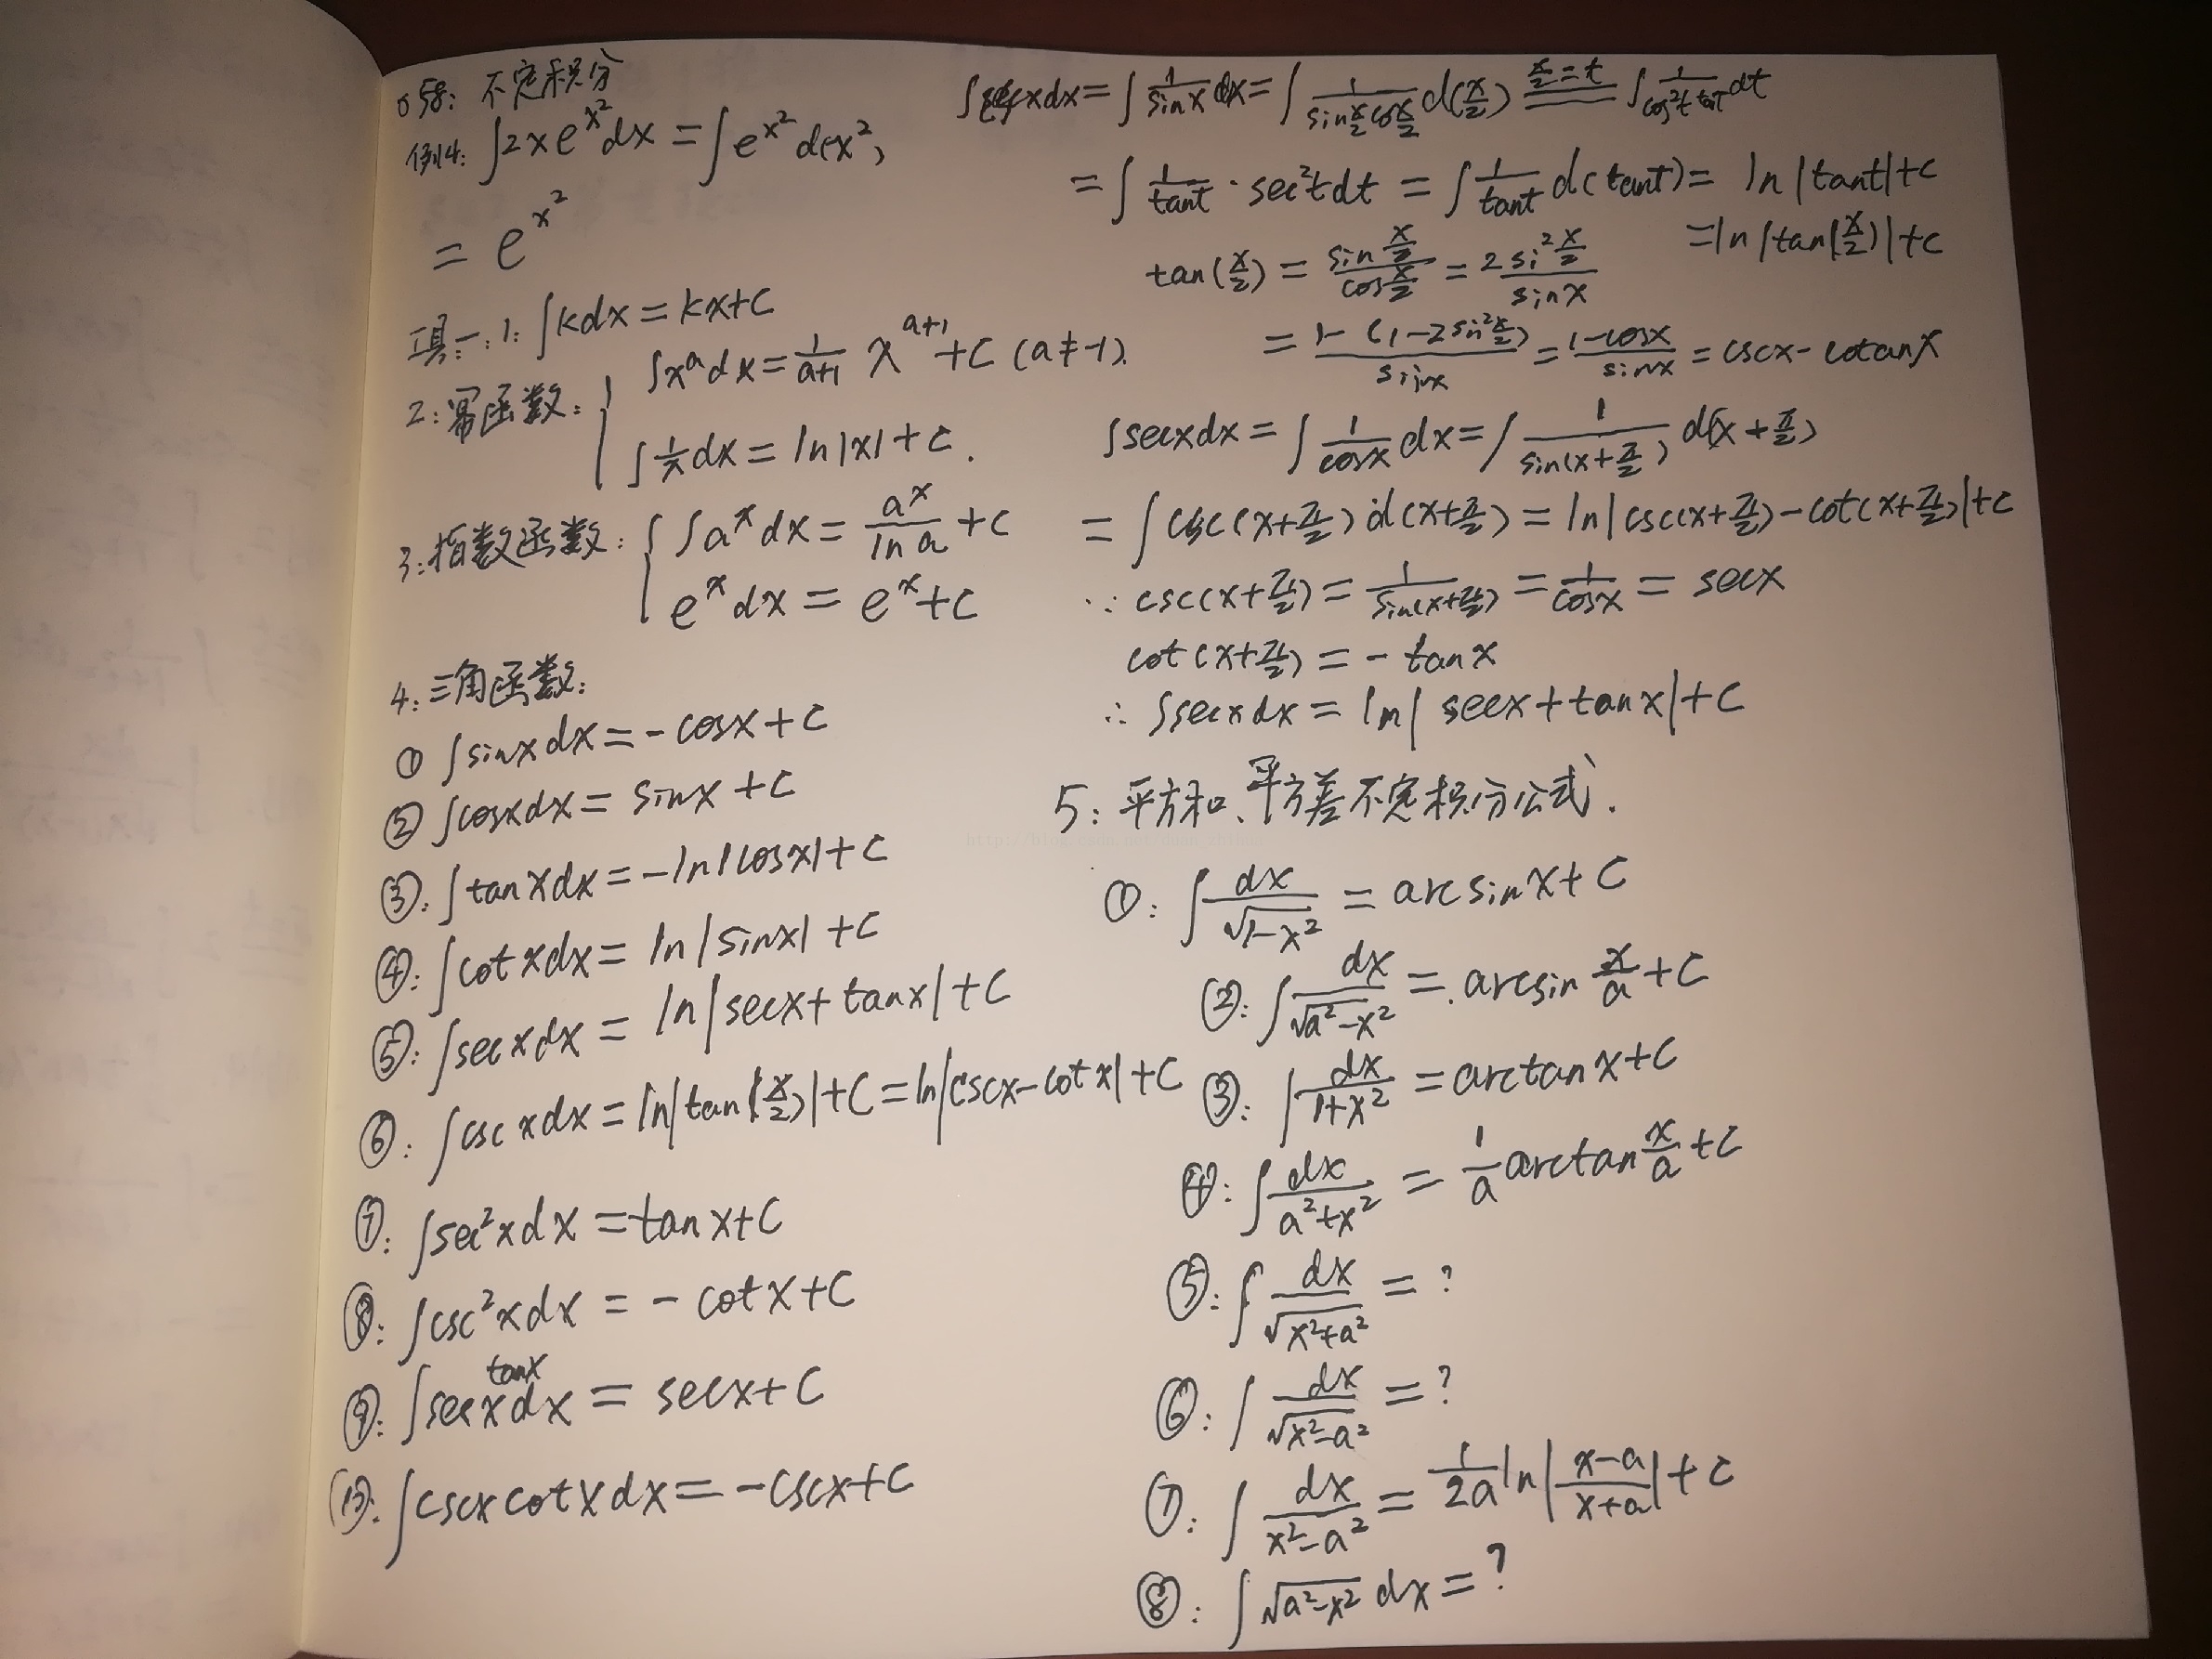 058: 不定积分
例4: ∫2xe^{x^2}dx = ∫e^{x^2}d(x^2)
= e^{x^2}
工具一、1: ∫kdx = kx+C
2: 幂函数: { ∫x^a dx = \frac{1}{a+1} x^{a+1} + C (a≠-1).
∫\frac{1}{x}dx = ln|x| + C.
3: 指数函数: { ∫a^x dx = \frac{a^x}{ln a} + C
e^x dx = e^x + C
4: 三角函数:
① ∫sinxdx = -cosx + C
② ∫cosxdx = sinx + C
③. ∫tanxdx = -ln|cosx| + C
④: ∫cotxdx = ln|sinx| + C
⑤: ∫secxdx = ln|secx + tanx| + C
⑥: ∫cscxdx = ln|tan(\frac{x}{2})| + C = ln|cscx - cotx| + C
⑦: ∫sec^2xdx = tanx + C
⑧: ∫csc^2xdx = -cotx + C
⑨: ∫secx tanx dx = secx + C
⑩: ∫cscxcotxdx = -cscx + C
∫cscxdx = ∫\frac{1}{sinx}dx = ∫\frac{1}{sin\frac{x}{2}cos\frac{x}{2}}d(\frac{x}{2}) \frac{x}{2}=t ∫\frac{1}{cos^2t tant}dt
= ∫\frac{1}{tant}·sec^2tdt = ∫\frac{1}{tant}d(tant) = ln|tant|+C
= ln|tan(\frac{x}{2})|+C
tan(\frac{x}{2}) = \frac{sin\frac{x}{2}}{cos\frac{x}{2}} = \frac{2si^2\frac{x}{2}}{sinx}
= \frac{1-(1-2sin^2\frac{x}{2})}{sinx} = \frac{1-cosx}{sinx} = cscx - cotanx
∫secxdx = ∫\frac{1}{cosx}dx = ∫\frac{1}{sin(x+\frac{π}{2})}d(x+\frac{π}{2})
= ∫csc(x+\frac{π}{2})d(x+\frac{π}{2}) = ln|csc(x+\frac{π}{2})-cot(x+\frac{π}{2})|+C
∵ csc(x+\frac{π}{2}) = \frac{1}{sin(x+\frac{π}{2})} = \frac{1}{cosx} = secx
cot(x+\frac{π}{2}) = -tanx
∴ ∫secxdx = ln|secx+tanx|+C
5: 平方和、平方差不定积分公式.
①: ∫\frac{dx}{\sqrt{1-x^2}} = arcsinx + C
②: ∫\frac{dx}{\sqrt{a^2-x^2}} = arcsin\frac{x}{a} + C
③: ∫\frac{dx}{1+x^2} = arctanx + C
④: ∫\frac{dx}{a^2+x^2} = \frac{1}{a}arctan\frac{x}{a} + C
⑤: ∫\frac{dx}{\sqrt{x^2+a^2}} = ?
⑥: ∫\frac{dx}{\sqrt{x^2-a^2}} = ?
⑦: ∫\frac{dx}{x^2-a^2} = \frac{1}{2a}ln|\frac{x-a}{x+a}| + C
⑧: ∫\sqrt{a^2-x^2}dx = ?